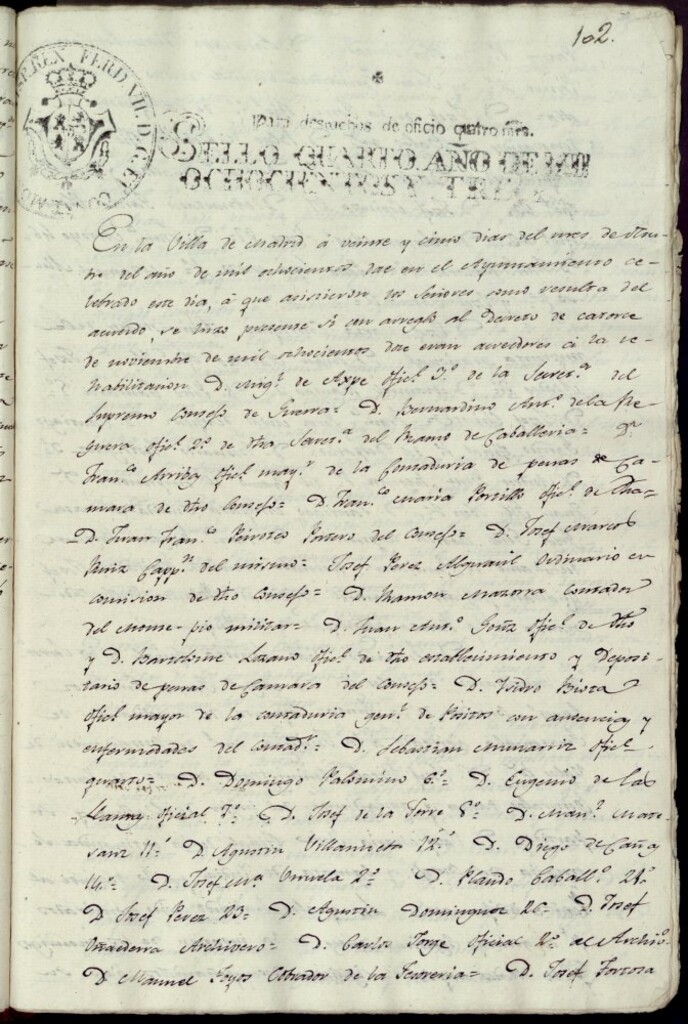 102.
FERD. VII. D. G.
REX
Para despachos de oficio quatro mrs.
SELLO QUARTO, AÑO DE MIL
OCHOCIENTOS Y TRECE
En la Villa de Madrid á veinte y cinco dias del mes de
del año de mil ochocientos doce en el Ayuntamiento ce-
lebrado este dia, á que asistieron los Señores como resulta del
acuerdo, se hizo presente si con arreglo al Decreto de catorce
de noviembre de mil ochocientos doce eran acreedores á la re-
habilitacion D. Mig.l de Axpe ofic.l 3.º de la Secret.a del
Supremo Consejo de Guerra= D. Bernardino Ant.º de la Re-
guera ofic.l 2.º de dha Secret.a del Ramo de Caballeria= D.n
Fran.co Arriba ofic.l may.r de la Contaduria de penas de Ca-
mara de dho Consejo= D. Fran.co Maria Portillo ofic.l de dha=
D. Juan Fran.co Portero del Consejo= D. Josef Marcos
Ruiz Capp.n del mismo= Josef Perez Alguacil Ordinario en
comision de dho Consejo= D. Ramon Mazorra Contador
del Monte-pio militar= D. Juan Ant.º Gonz. ofic.l de dho
y D. Bartolome Lozano ofic.l de dho establecimiento y Deposi-
tario de penas de Camara del Consejo= D. Isidro
Ofic.l mayor de la contaduria gen.l de Positos con ausencias y
enfermedades del Contad.r= D. Sebastian Munarriz ofic.l
quarto= D. Domingo Palomino 6.º= D. Eugenio de las
Llanas oficial 7.º= D. Josef de la Torre 8.º= D. Man.l Mate-
sanz 11.º D. Agustin Villanueba 12.º D. Diego de Cañas
14.º= D. Josef M.a 2.º D. Placido Caball.º 21.º
D. Josef Perez 23= D. Agustin Dominguez 26= D. Josef
Archivero= D. Carlos Jorge oficial 2.º de Archivo
D. Manuel Hoyos Cobrador de la Tesoreria= D. Josef Tortosa